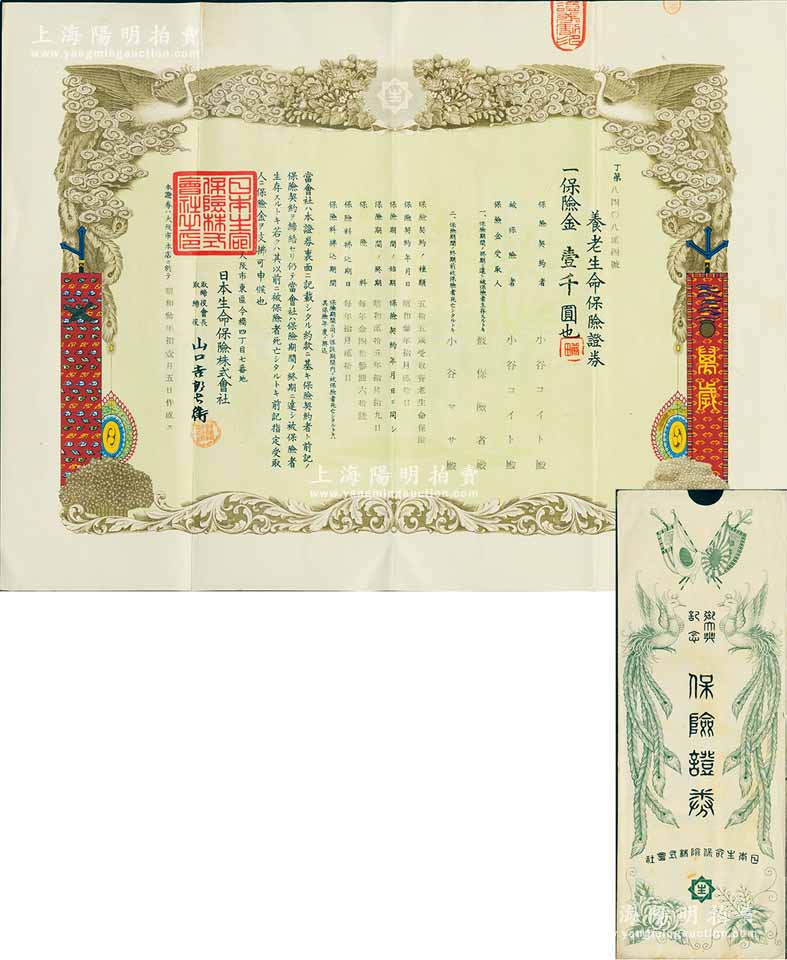 上海陽明拍賣
www.yangmingauction.com
上海陽明拍賣
www.yangmingauction.com
生
丁第八四〇八貳四號
養老生命保險證券
一保險金 壹千圓也
保險契約者 小谷コイト殿
被保險者 小谷コイト殿
保險金受取人
一、保險期間ノ終期ニ達シ被保險者生存スルトキ 被保險者殿
二、保險期間ノ終期前被保險者死亡シタルトキ 小谷マサ殿
保險契約ノ種類 五拾五歳受取養老生命保險
保險契約年月日 昭和參年拾月貳拾日
保險期間ノ始期 保險契約年月日ニ同シ
保險期間ノ終期 昭和貳拾五年拾月拾九日
保險料 每年金四拾參圓六拾錢
保險料拂込期日 每年拾月貳拾日
保險料拂込期間 保險期間ニ同シ
當會社ハ本證券裏面ニ記載シタル約款ニ基キ保險契約者ト前記ノ
保險契約ヲ締結セリ仍テ當會社ハ保險期間ノ終期ニ達シ被保險者
生存スルトキ若クハ其以前ニ被保險者死亡シタルトキ前記指定受取
人ニ保險金ヲ支拂可申候也
大阪市東區今橋四丁目七番地
日本生命保險株式會社
取締役會長
取締役 山口吉郎兵衛
本證券ハ大阪市本店ニ於テ 昭和參年拾壹月五日作成ス
日本生命保險株式會社之印
萬歲
上海陽明拍賣
www.yangmingauction.com
御大典
記念
保險證券
日本生命保險株式會社
生
上海陽明拍賣
www.yangmingauction.com